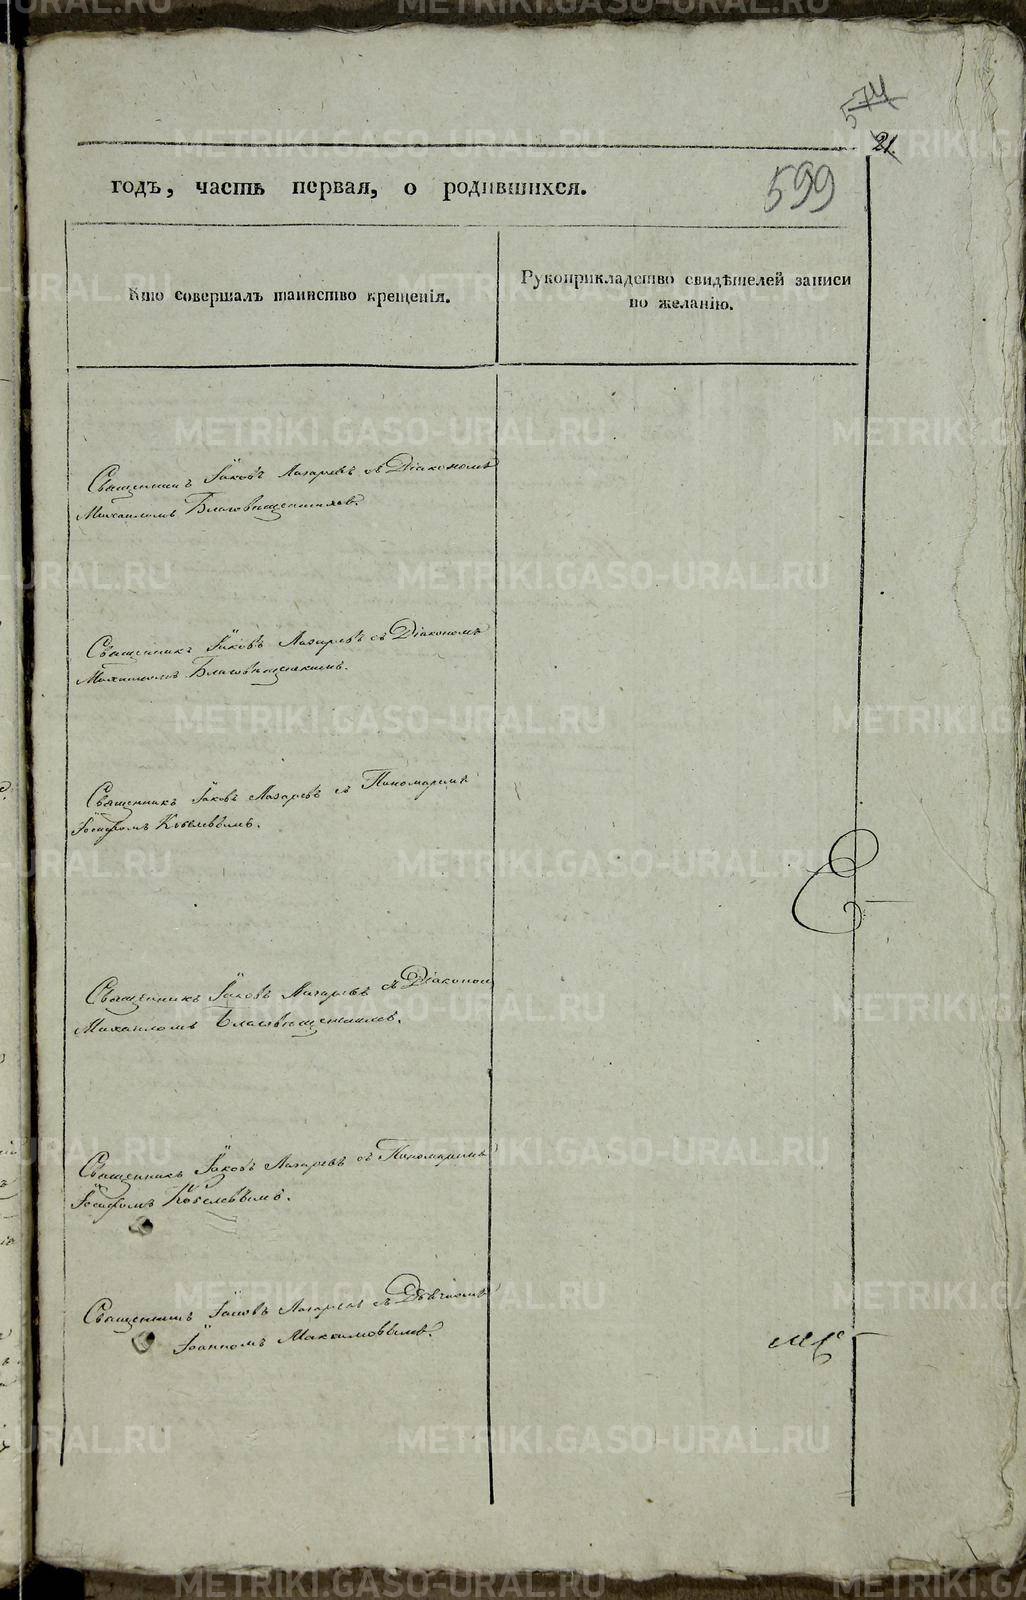 574
21.
годъ, часть первая, о родившихся.
599
Кто совершалъ таинство крещенія.
Рукоприкладство свидѣтелей записи
по желанію.
Священникъ Іаковъ Лазаревъ съ Діакономъ
Михаиломъ Благовѣщенскимъ.
Священникъ Іаковъ Лазаревъ съ Діакономъ
Михаиломъ Благовѣщенскимъ.
Священникъ Іаковъ Лазаревъ съ Пономаремъ
Іосифомъ Кобелевымъ.
Священникъ Іаковъ Лазаревъ съ Діаконом
Михаиломъ Благовѣщенскимъ.
Священникъ Іаковъ Лазаревъ съ Пономаремъ
Іосифомъ Кобелевымъ.
Священникъ Іаковъ Лазаревъ съ Дьячкомъ
Іоанномъ Максимовымъ.
METRIKI.GASO-URAL.RU